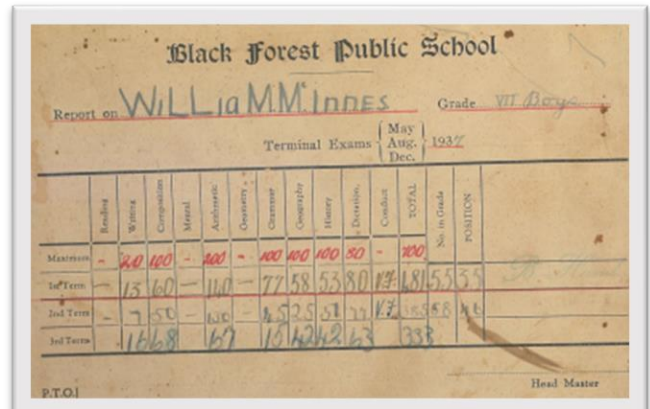 Black Forest Public School
Report on WiLLiaM M^c INNES Grade VII Boys
Terminal Exams { May Aug. Dec. } 1937
Reading Writing Composition Mental Arithmetic Geometry Grammar Geography History Dictation, Conduct TOTAL No. in Grade POSITION
Maximum - 20 100 - 200 - 100 100 100 80 - 700
1st Term - 13 60 - 140 - 77 58 53 80 V.G 481 55 35
2nd Term - 7 50 - - 45 25 51 77 V.G
3rd Term 16 68 15 42 42 63 333
P.T.O.] Head Master